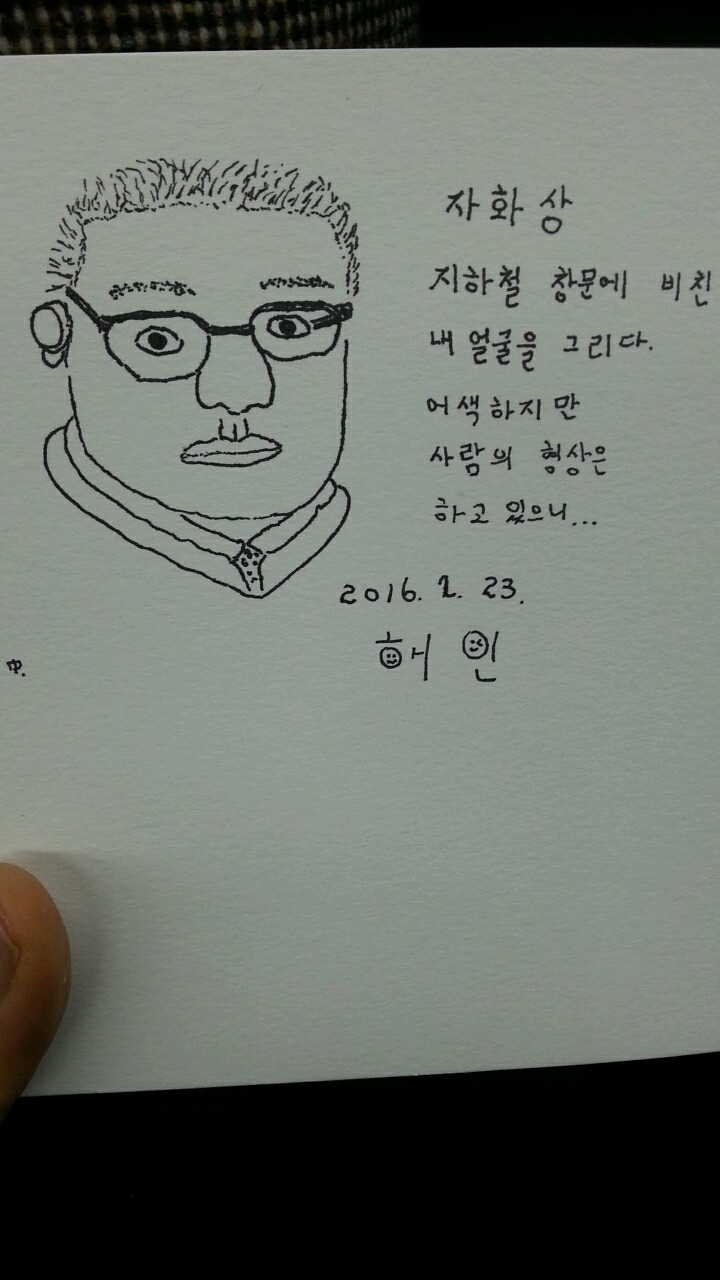 자화상
지하철 창문에 비친
내 얼굴을 그리다.
어색하지만
사람의 형상은
하고 있으니...
2016. 2. 23.
해인
中.